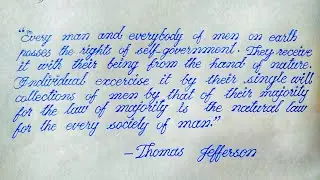 "Every man and everybody of men on earth
posses the rights of self-government. They receive
it with their being from the hand of nature.
Individual excercise it by their single will
collections of men by that of their majority
for the law of majority is the natural law
for the every society of man."
—Thomas Jefferson